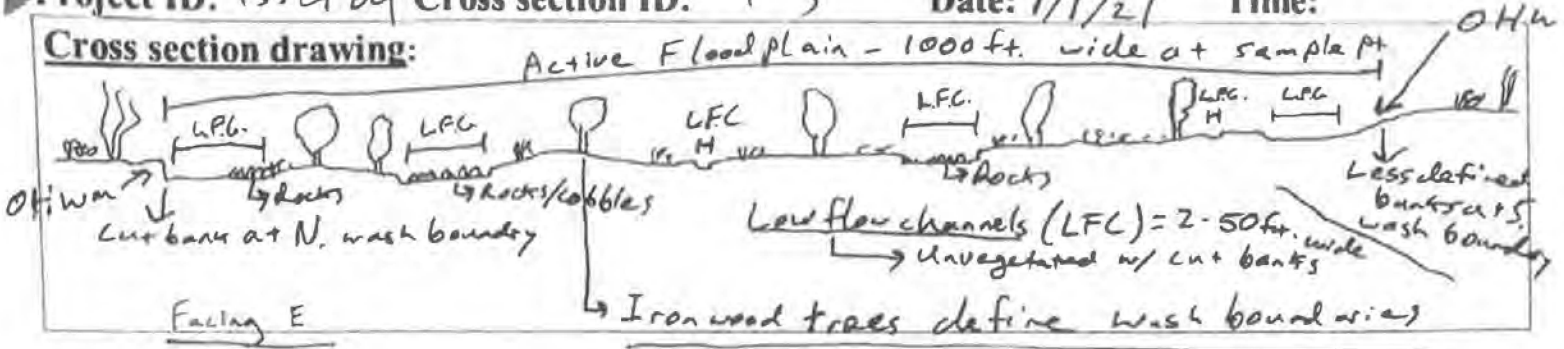 Project ID: Cross section ID: Date: 1/1/21 Time:
OHW
Cross section drawing:
Active Floodplain - 1000 ft. wide at sample pt.
L.F.C. LFC LFC L.F.C. L.F.C. L.F.C.
OHWM
Rocks
Rocks/cobbles
Rocks
Less defined banks at S. wash boundary
Cut bank at N. wash boundry
Low flow channels (LFC) = 2-50 ft. wide
Unvegetated w/ cut banks
Iron wood trees define wash boundaries
Facing E